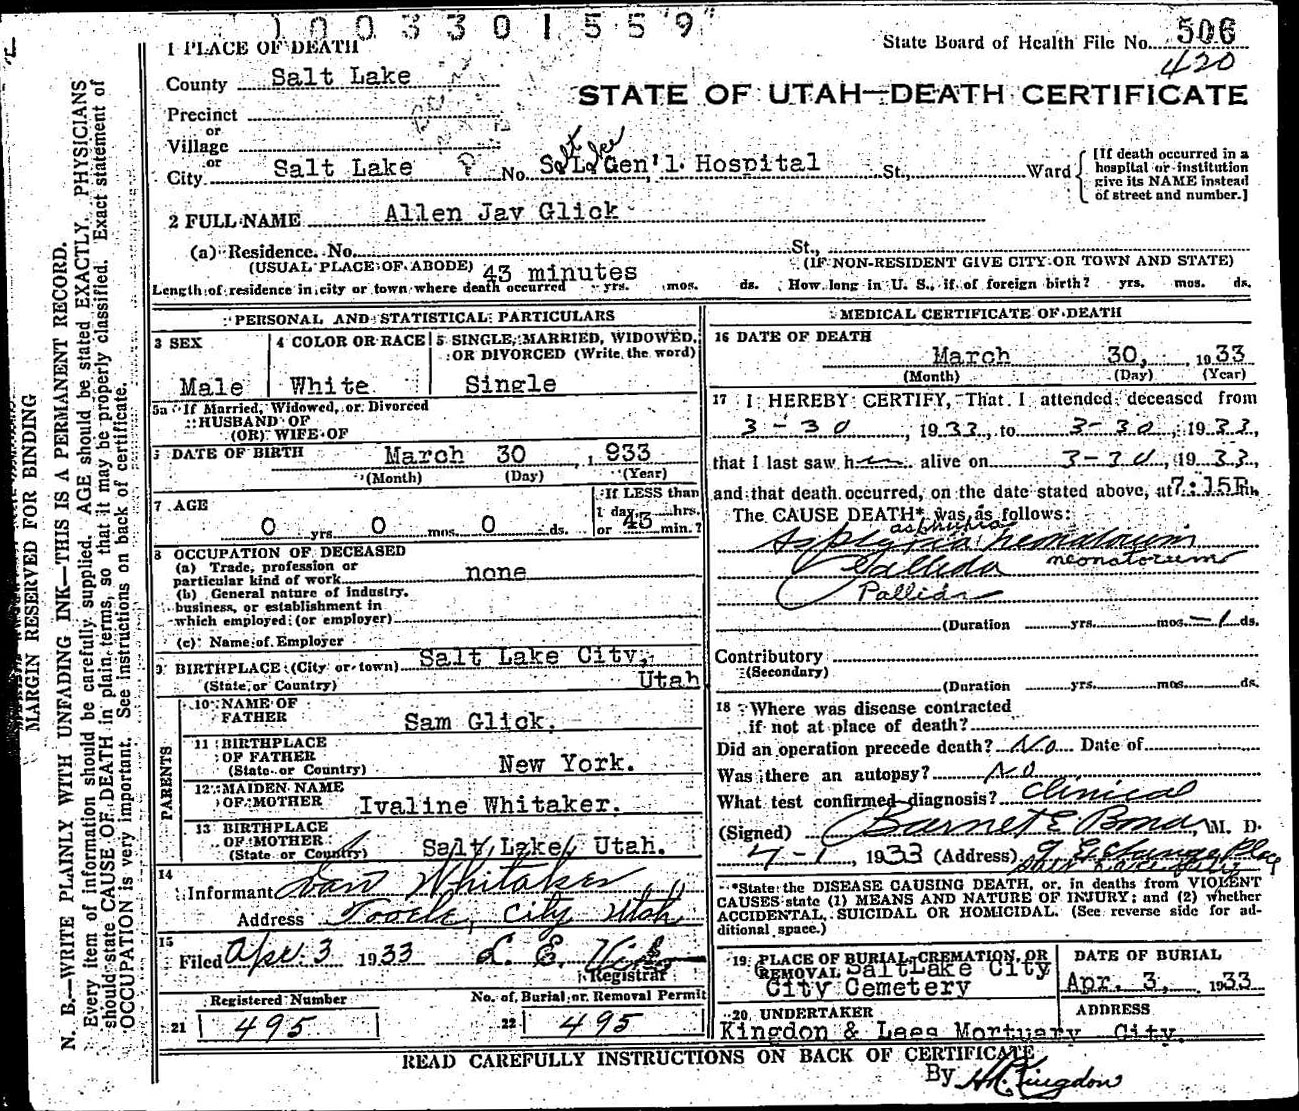 1003301559
State Board of Health File No. 506
420
1 PLACE OF DEATH
County Salt Lake
STATE OF UTAH—DEATH CERTIFICATE
Precinct
or
Village
or
City Salt Lake No. S. L. Gen'l. Hospital St., Ward
Salt Lake
[If death occurred in a
hospital or institution
give its NAME instead
of street and number.]
2 FULL NAME Allen Jay Glick
(a) Residence. No. St.,
(USUAL PLACE OF ABODE) (IF NON-RESIDENT GIVE CITY OR TOWN AND STATE)
43 minutes
Length of residence in city or town where death occurred yrs. mos. ds. How long in U. S., if of foreign birth? yrs. mos. ds.
PERSONAL AND STATISTICAL PARTICULARS
3 SEX
Male
4 COLOR OR RACE
White
5 SINGLE, MARRIED, WIDOWED,
OR DIVORCED (Write the word)
Single
5a If Married, Widowed, or Divorced
HUSBAND OF
(OR) WIFE OF
6 DATE OF BIRTH March 30, 1933
(Month) (Day) (Year)
7 AGE
0 yrs. 0 mos. 0 ds.
If LESS than
1 day, hrs.
or 43 min.?
8 OCCUPATION OF DECEASED
(a) Trade, profession or
particular kind of work none
(b) General nature of industry,
business, or establishment in
which employed (or employer)
(c) Name of Employer
9 BIRTHPLACE (City or town) Salt Lake City,
(State or Country) Utah
PARENTS
10 NAME OF
FATHER Sam Glick.
11 BIRTHPLACE
OF FATHER
(State or Country) New York.
12 MAIDEN NAME
OF MOTHER Ivaline Whitaker.
13 BIRTHPLACE
OF MOTHER
(State or Country) Salt Lake, Utah.
14
Informant Dan Whitaker
Address Tooele, City Utah
15
Filed Apr. 3 1933 L. E.
Registrar
Registered Number
21 495
No. of Burial or Removal Permit
22 495
MEDICAL CERTIFICATE OF DEATH
16 DATE OF DEATH
March 30, 1933
(Month) (Day) (Year)
17 I HEREBY CERTIFY, That I attended deceased from
3-30, 1933, to 3-30, 1933,
that I last saw him alive on 3-30, 1933,
and that death occurred, on the date stated above, at 7:15P.m.
The CAUSE DEATH* was as follows:
asphyxia
Asphyxia neonatorum
Pallida neonatorum
Pallida
(Duration yrs. mos. 1 ds.
Contributory
(Secondary)
(Duration yrs. mos. ds.
18 Where was disease contracted
if not at place of death?
Did an operation precede death? No Date of
Was there an autopsy? No
What test confirmed diagnosis? Clinical
(Signed) Barnet E Bonar, M. D.
4-1, 1933 (Address) 9 Exchange Place
Salt Lake City
*State the DISEASE CAUSING DEATH, or, in deaths from VIOLENT
CAUSES state (1) MEANS AND NATURE OF INJURY; and (2) whether
ACCIDENTAL, SUICIDAL OR HOMICIDAL. (See reverse side for ad-
ditional space.)
19 PLACE OF BURIAL, CREMATION, OR
REMOVAL Salt Lake City
City Cemetery
DATE OF BURIAL
Apr. 3, 1933
20 UNDERTAKER
Kingdon & Lees Mortuary
ADDRESS
City.
READ CAREFULLY INSTRUCTIONS ON BACK OF CERTIFICATE
By Kingdon
MARGIN RESERVED FOR BINDING
N. B.—WRITE PLAINLY WITH UNFADING INK—THIS IS A PERMANENT RECORD.
Every item of information should be carefully supplied. AGE should be stated EXACTLY. PHYSICIANS
should state CAUSE OF DEATH in plain terms, so that it may be properly classified. Exact statement of
OCCUPATION is very important. See instructions on back of certificate.